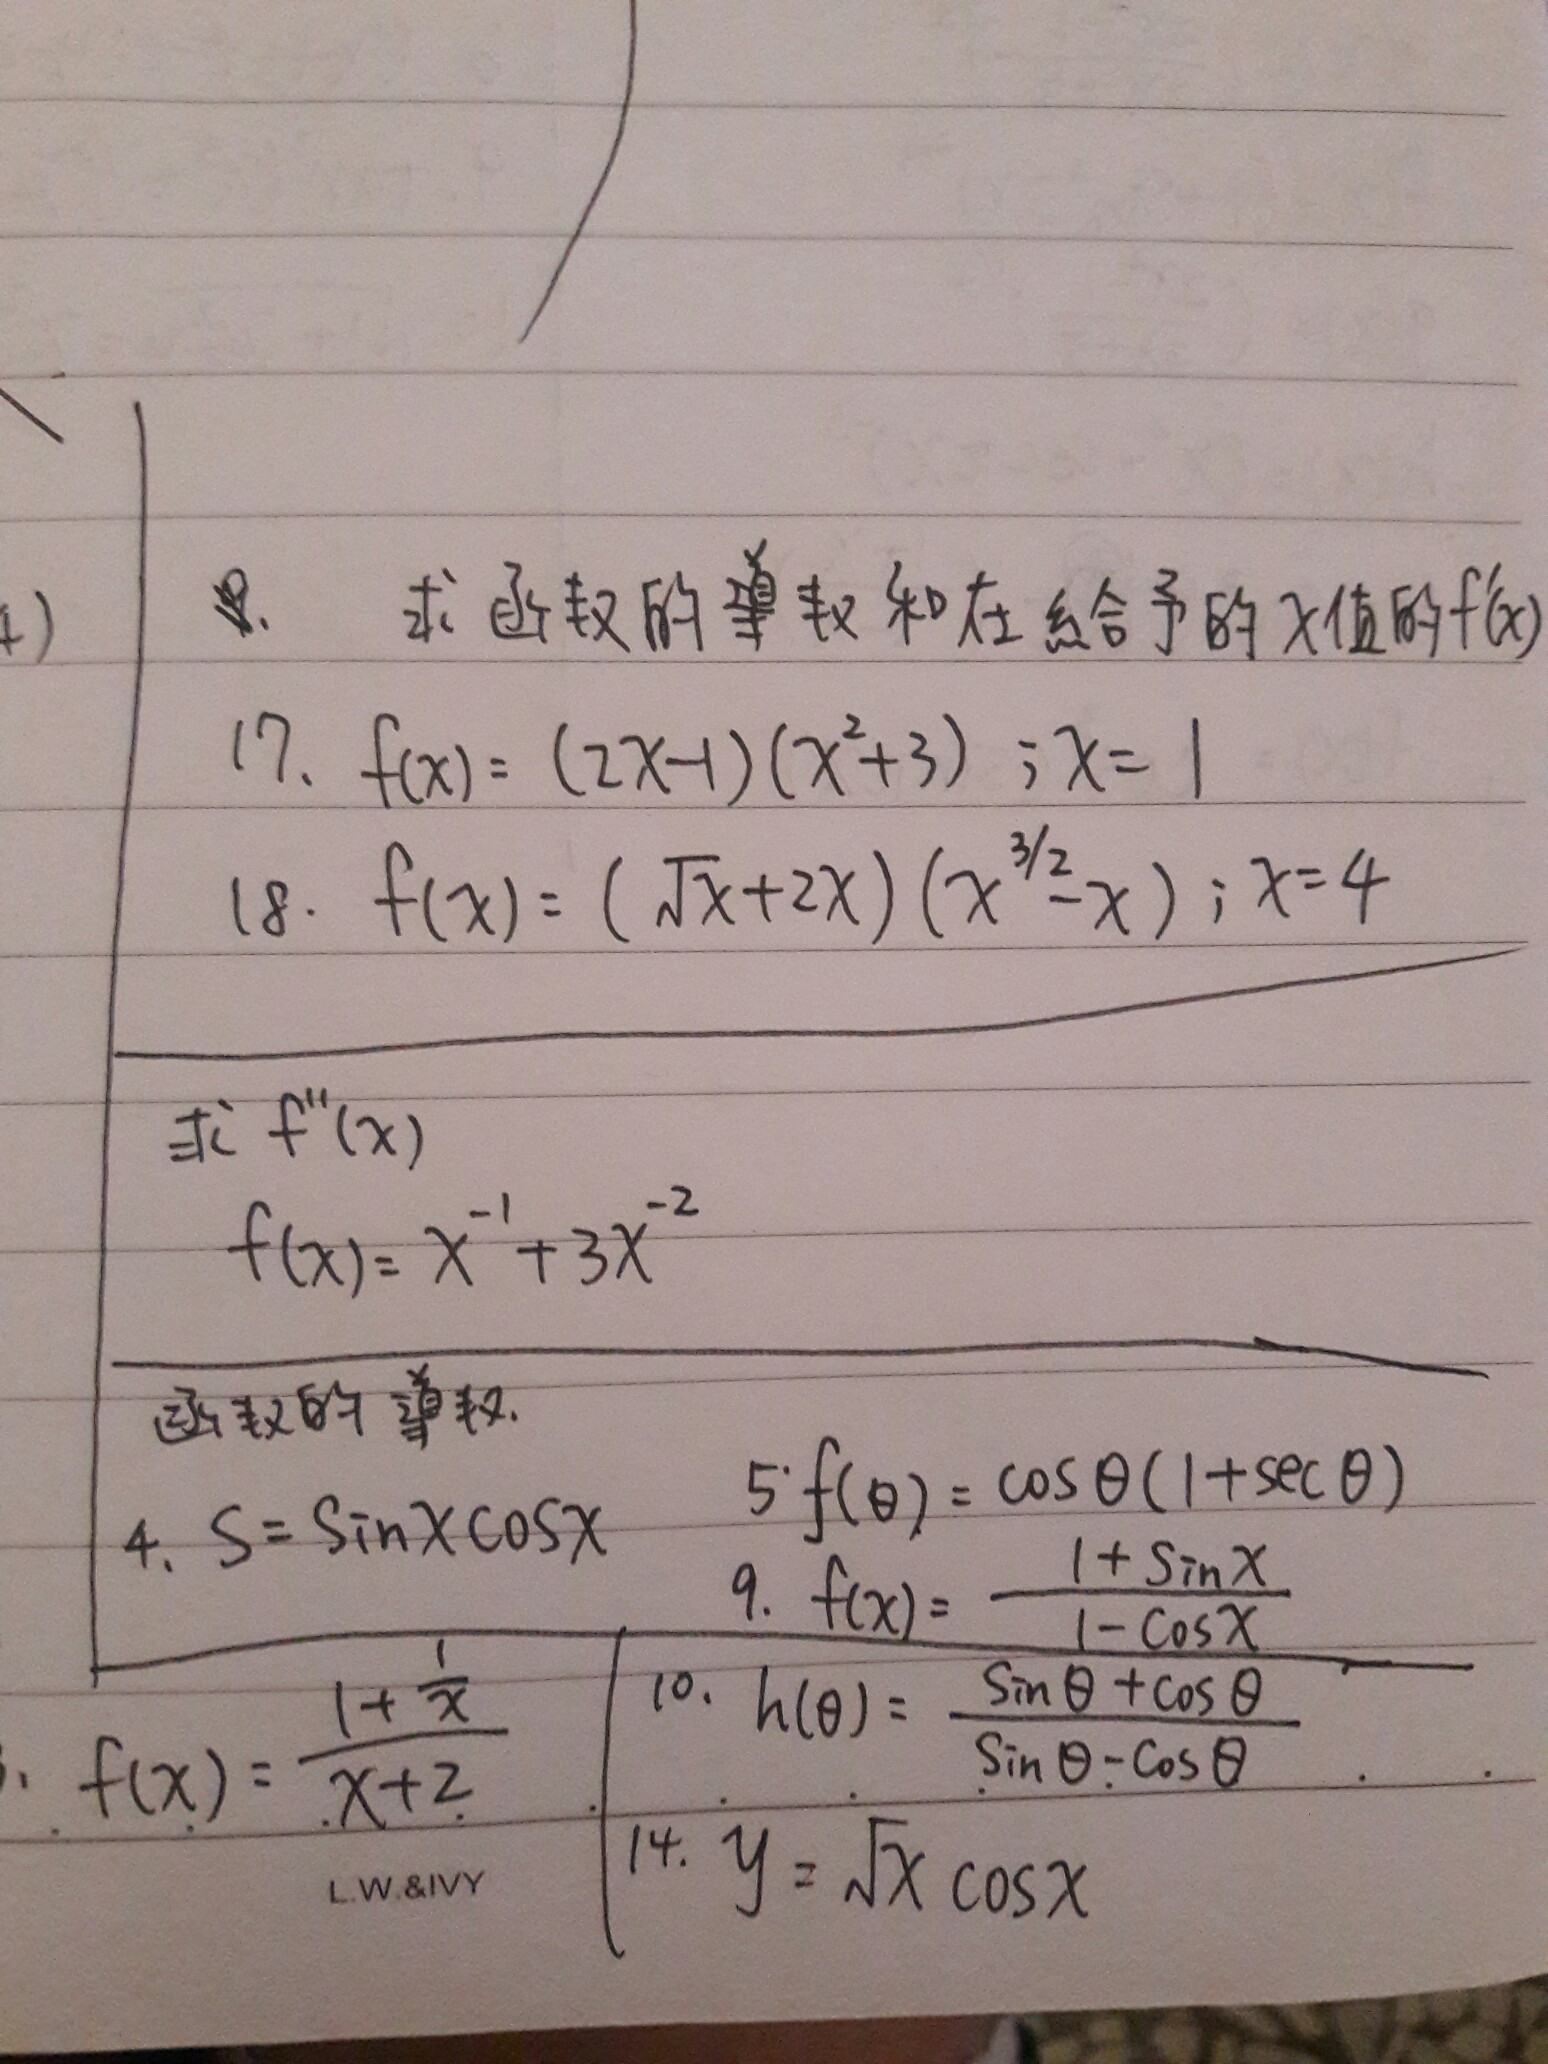 求函数的導数和在給予的x值的f'(x)
17. f(x)= (2x-1)(x²+3) ; x= 1
18. f(x)= (√x+2x)(x^3/2-x) ; x=4
求 f''(x)
f(x)= x⁻¹+3x⁻²
函数的導数.
4. S= sinxcosx
5. f(θ)= cosθ(1+secθ)
9. f(x)= (1+sinx)/(1-cosx)
f(x)= (1+1/x)/(x+2)
10. h(θ)= (sinθ+cosθ)/(sinθ-cosθ)
14. y= √x cosx
L.W.&IVY